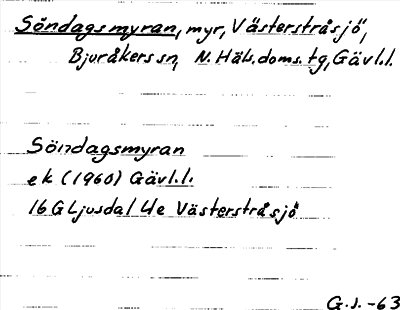 Söndagsmyran, myr, Västerstråsjö,
Bjuråkers sn, N. Häls. doms. tg, Gävl.l.
Söndagsmyran
ek (1960) Gävl.l.
16 G Ljusdal 4e Västerstråsjö
G.J. -63